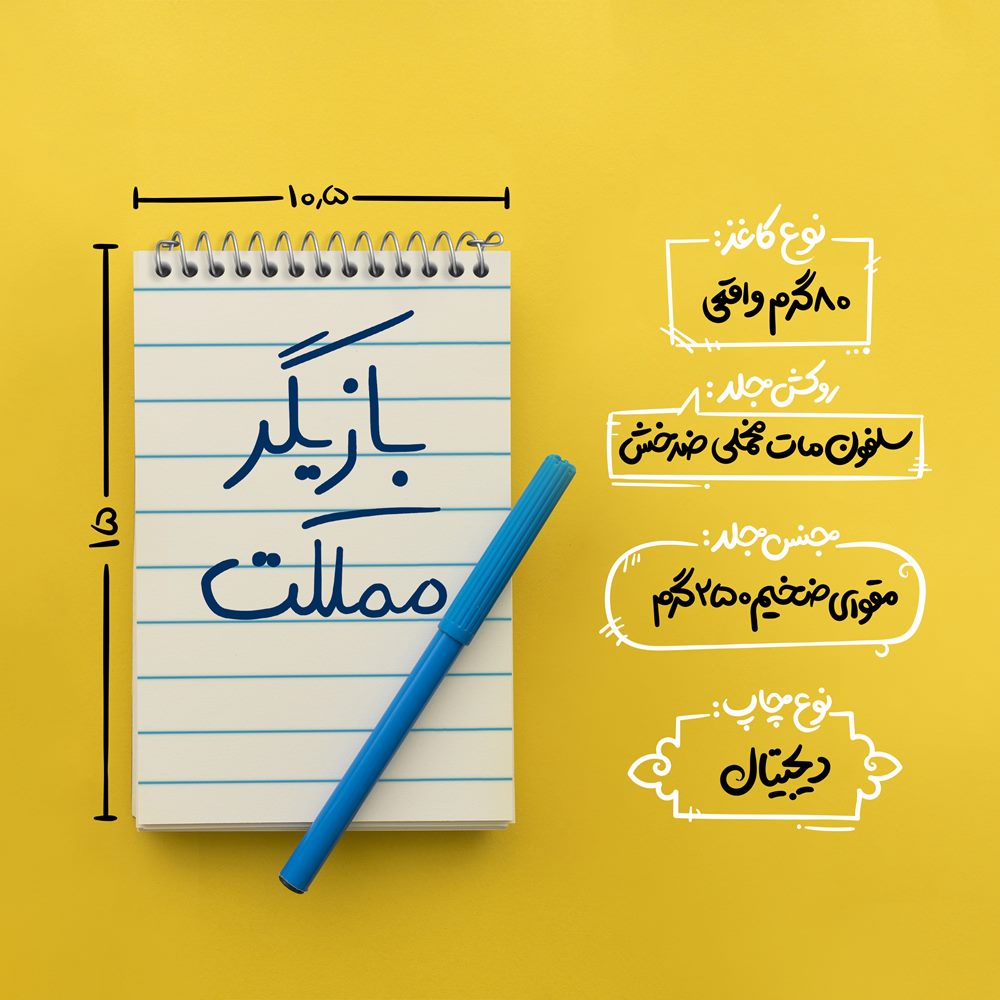 ۱۰٫۵
۱۵
بازیگر
مملکت
نوع کاغذ:
۸۰ گرم واقعی
روکش جلد:
سلفون مات مخملی ضدخش
جنس جلد:
مقوای ضخیم ۲۵۰ گرم
نوع چاپ:
دیجیتال